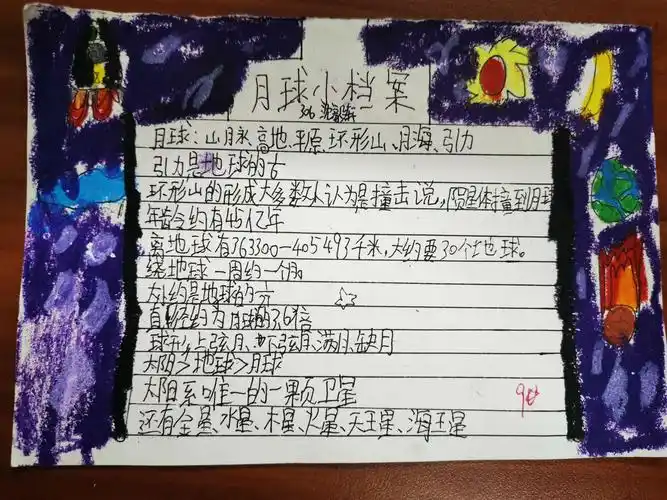 月球小档案
306
月球:山脉、高地、平原、环形山、月海、引力
引力是地球的六
环形山的形成大多数人认为是撞击说,陨星体撞到月球
年龄约有45亿年
离地球有363300-405493千米,大约要30个地球。
绕地球一周约一个月。
大约是地球的
直径约为月球的3.6倍
球形、上弦月、下弦月、满月、缺月
太阳>地球>月球
太阳系唯一的一颗卫星
还有金星、水星、木星、火星、天王星、海王星